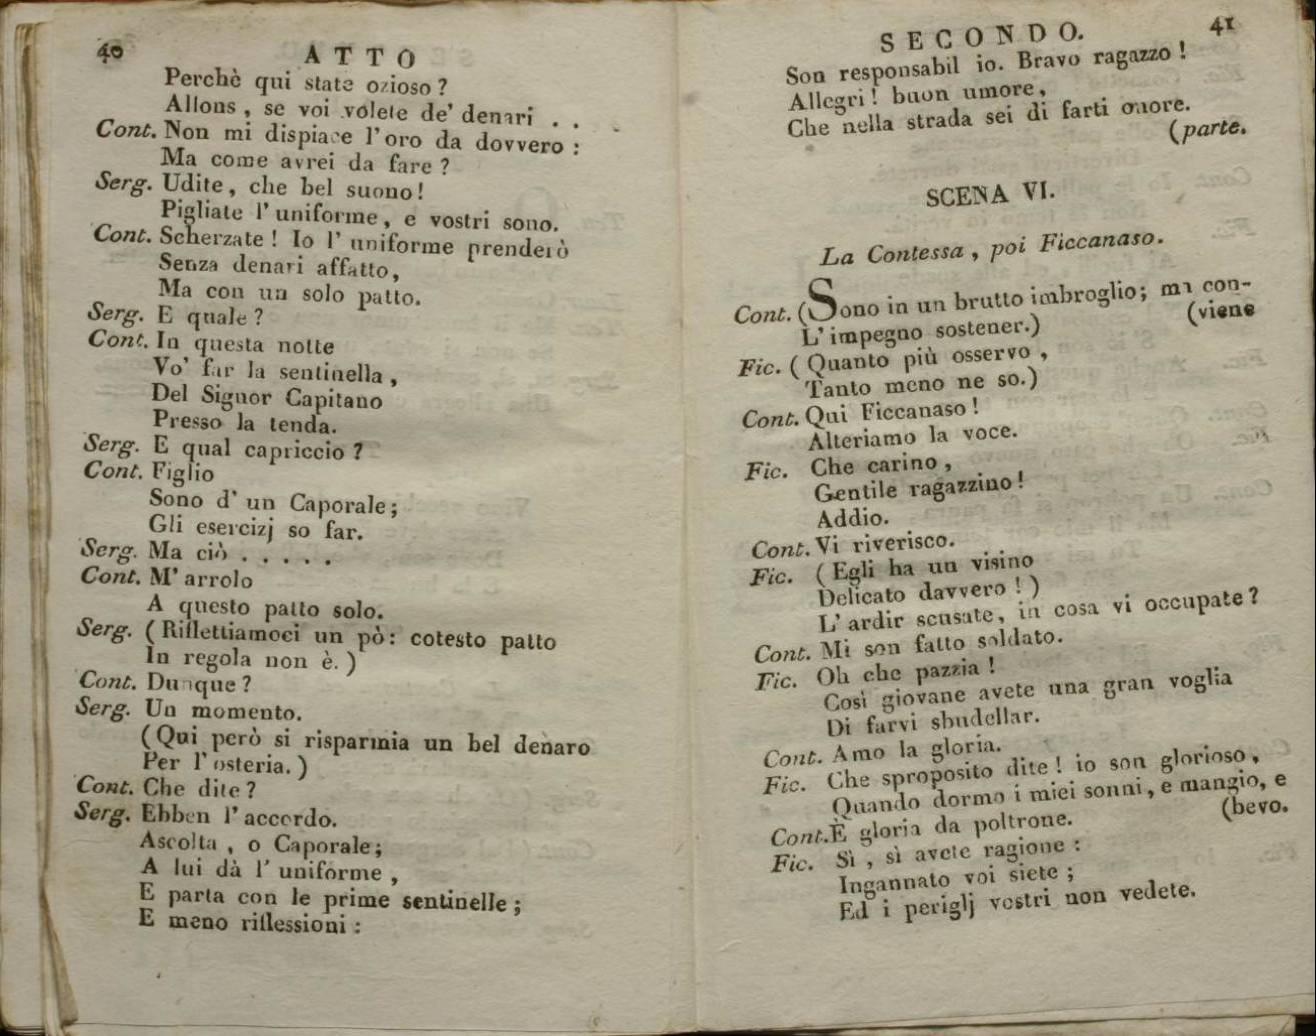 40
ATTO
Perchè qui state ozioso?
Allons, se voi volete de' denari . .
Cont. Non mi dispiace l'oro da dovvero:
Ma come avrei da fare?
Serg. Udite, che bel suono!
Pigliate l'uniforme, e vostri sono.
Cont. Scherzate! Io l'uniforme prenderò
Senza denari affatto,
Ma con un solo patto.
Serg. E quale?
Cont. In questa notte
Vo' far la sentinella,
Del Signor Capitano
Presso la tenda.
Serg. E qual capriccio?
Cont. Figlio
Sono d'un Caporale;
Gli esercizj so far.
Serg. Ma ciò . . . . .
Cont. M'arrolo
A questo patto solo.
Serg. (Riflettiamoci un pò: cotesto patto
In regola non è.)
Cont. Dunque?
Serg. Un momento.
(Qui però si risparmia un bel denaro
Per l'osteria.)
Cont. Che dite?
Serg. Ebben l'accordo.
Ascolta, o Caporale;
A lui dà l'uniforme,
E parta con le prime sentinelle;
E meno riflessioni:
SECONDO.
41
Son responsabil io. Bravo ragazzo!
Allegri! buon umore,
Che nella strada sei di farti onore.
(parte.
SCENA VI.
La Contessa, poi Ficcanaso.
Cont. (Sono in un brutto imbroglio; ma con-
L'impegno sostener.) (viene
Fic. (Quanto più osservo,
Tanto meno ne so.)
Cont. Qui Ficcanaso!
Alteriamo la voce.
Fic. Che carino,
Gentile ragazzino!
Addio.
Cont. Vi riverisco.
Fic. (Egli ha un visino
Delicato davvero!)
L'ardir scusate, in cosa vi occupate?
Cont. Mi son fatto soldato.
Fic. Oh che pazzia!
Così giovane avete una gran voglia
Di farvi sbudellar.
Cont. Amo la gloria.
Fic. Che sproposito dite! io son glorioso,
Quando dormo i miei sonni, e mangio, e
(bevo.
Cont. È gloria da poltrone.
Fic. Sì, sì avete ragione:
Ingannato voi siete;
Ed i periglj vostri non vedete.